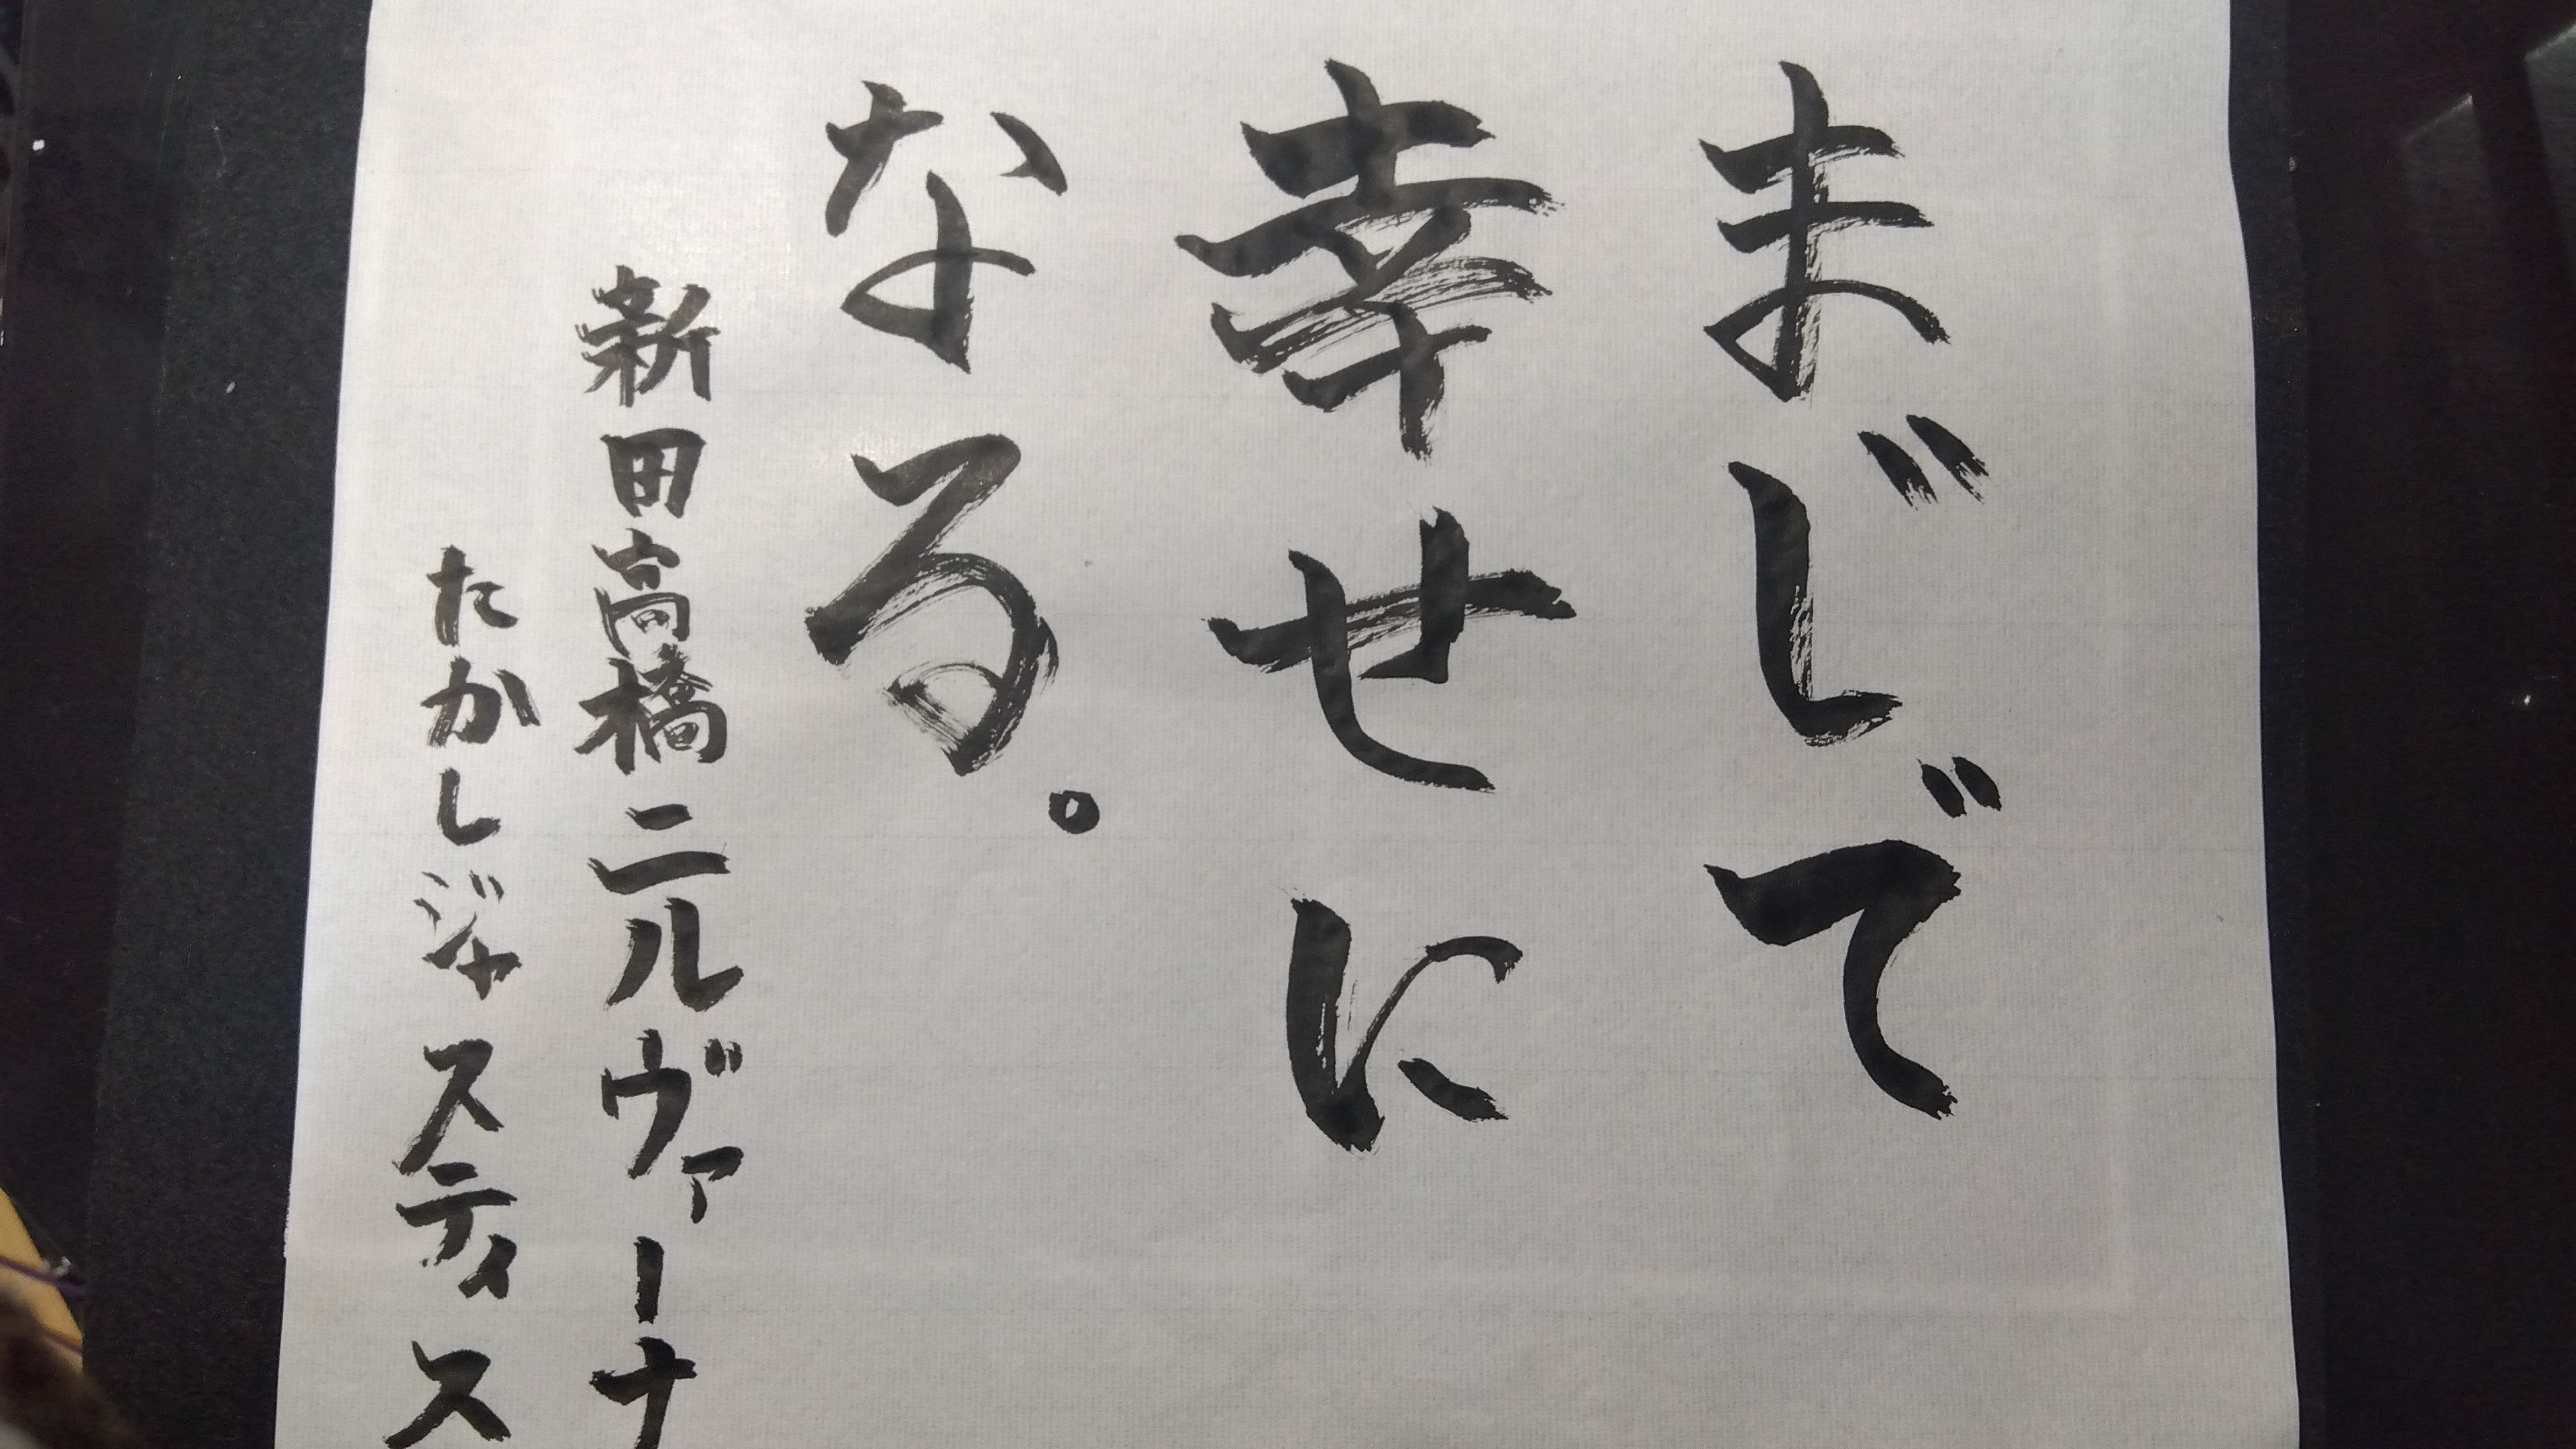 まじで
幸せに
なる。
新田高橋ニルヴァーナ
たかしジャスティス